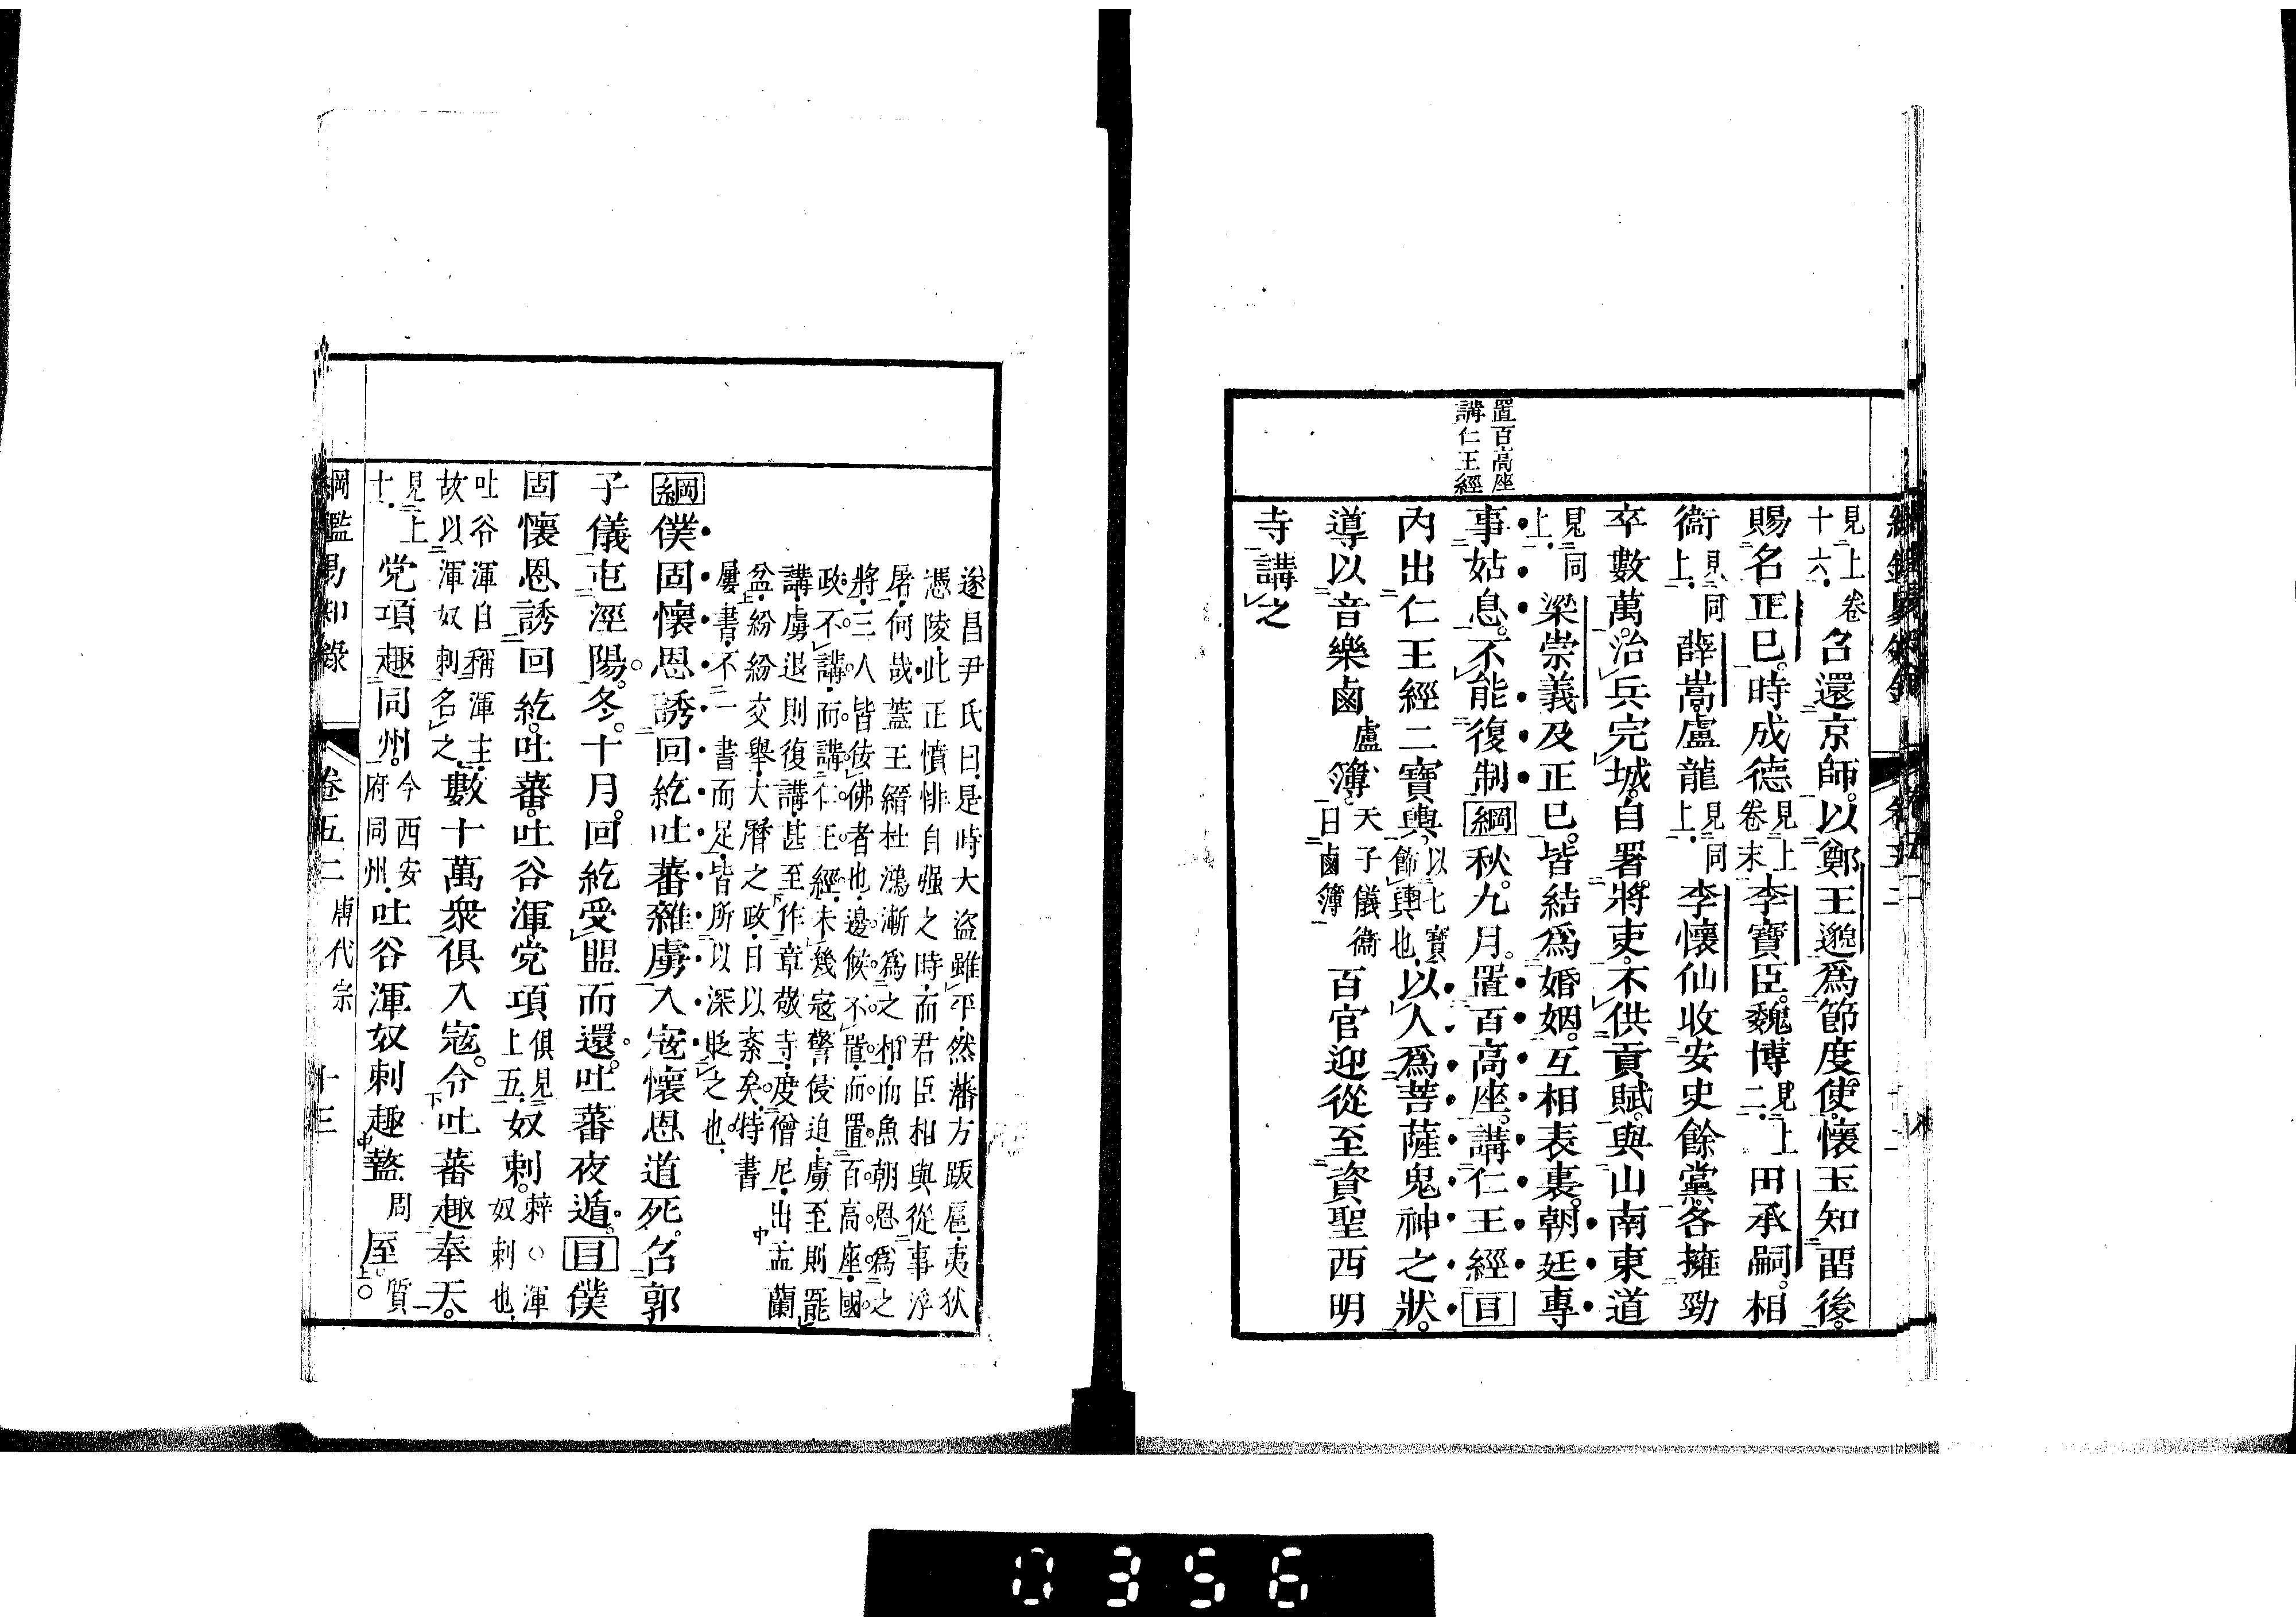 置百高座
講仁王經
見上卷十六召還京師以鄭王邈爲節度使懷玉知畱後
賜名正巳時成德見上卷末李寶臣魏博見上二田承嗣相
衞見同上薛嵩盧龍見同上李懷仙收安史餘黨各擁勁
卒數萬治兵完城自署將吏不供貢賦與山南東道
見同上梁崇義及正巳皆結爲婚姻互相表裏朝廷專
事姑息不能復制綱秋九月置百高座講仁王經目
內出仁王經二寶輿以七寶飾輿也以人爲菩薩鬼神之狀
導以音樂鹵盧簿天子儀衞曰鹵簿百官迎從至資聖西明
寺講之
遂昌尹氏曰是時大盜雖平然藩方跋扈夷狄
憑陵此正憤悱自强之時而君臣相與從事浮
屠何哉蓋王縉杜鴻漸爲之相而魚朝恩爲之
將三人皆佞佛者也邊候不置而置百高座國
政不講而講仁王經未幾寇警侵迫虜至則罷
講虜退則復講甚至作章敬寺度僧尼出盂蘭
盆紛紛交舉大曆之政日以紊矣特書
屢書不一書而足皆所以深貶之也
綱僕固懷恩誘回紇吐蕃雜虜入寇懷恩道死召郭
子儀屯涇陽冬十月回紇受盟而還吐蕃夜遁目僕
固懷恩誘回紇吐蕃吐谷渾党項俱見上五奴剌辣○渾奴剌也
吐谷渾自稱渾主故以渾奴剌名之數十萬衆俱入寇令吐蕃趣奉天
見上十党項趣同州今西安府同州吐谷渾奴剌趣盩周厔質
綱鑑易知錄 卷五二 唐代宗 十三